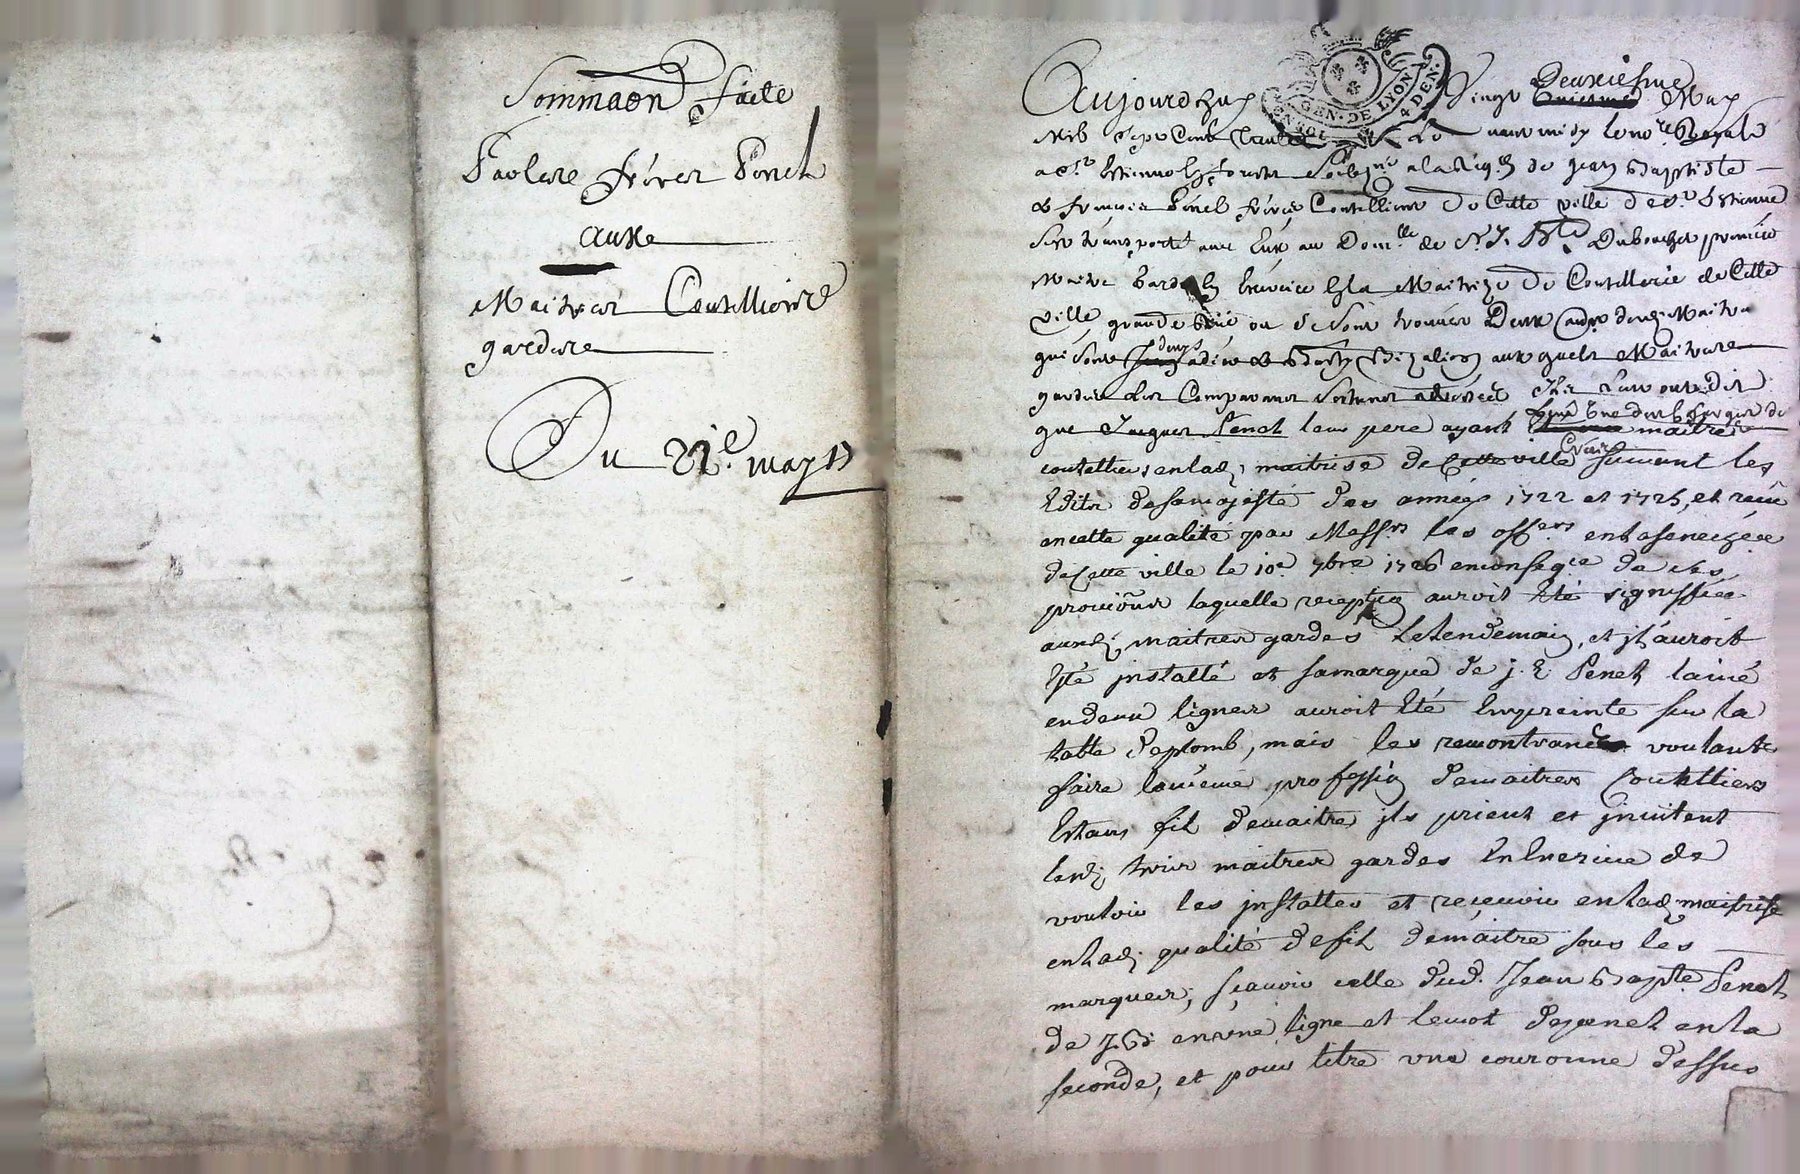 Sommaon faite
Par les frères Penel
aux
Maitres Coutelliers
gardes
Du 22e. may 17
GEN. DE LYON
4 DEN.
Aujourdhuy Vingt Deuxiesme May
mil sept Cent avant midy le no.re Royal
a St. Estienne en forests soubzné. a la Req.on de Jean Baptiste
& françois Penel frères Coutelliers de Cette ville de St. Estienne
s'est transporté avec Eux au Dom.lle de Sr. J. Bte. Dubouchet premier
Maitre Garde En Exercice En la Maitrize de Coutellerie de Cette
ville grande Rue ou se sont trouvés Deux autres Maitres
aux quels Maitres
gardes les Comparants ont dit
que Jacques Penel leur pere ayant maitre
coutelliers en lad; maitrise de Cette ville suivant les
Edits de sa majesté des années 1722 et 1725, et reçu
en cette qualité par Mess.rs les off.ers en la senechée
de Cette ville le 10e. 7bre 1726 en conseq.ce de ses
provisions laquelle reception auroit Eté signiffiée
auxd; maitres gardes Le lendemain, et jl auroit
Eté jnstallé et sa marque de j. E. Penel lainé
en deux lignes auroit Eté Empreinte sur la
table de plomb, mais les remontrants voulants
faire la même profession de maitres Coutelliers
Estans fils de maitre, jls prient et jnvitent
lesd; trois maitres gardes En Exercice de
vouloir les jnstaller et reçevoir en lad; maitrise
en lad; qualité de fils de maitre sous les
marques; sçavoir celle dud. Jean Bapte. Penel
de J. B. en une ligne et le mot de penel en la
seconde, et pour titre une couronne dessus